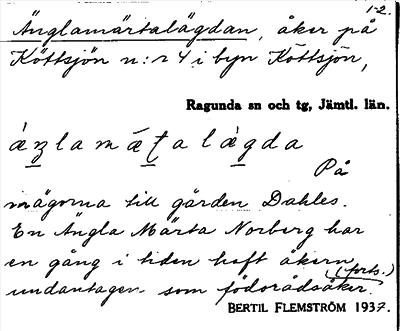 1-2.
Änglamärtalägdan, åker på
Köttsjön n:r 4 i byn Köttsjön,
Ragunda sn och tg, Jämtl. län.
På
ägorna till gården Dahles.
En Ängla Märta Norberg har
en gång i tiden haft åkern
(forts.)
undantagen som födorådsåker.
BERTIL FLEMSTRÖM 1937.